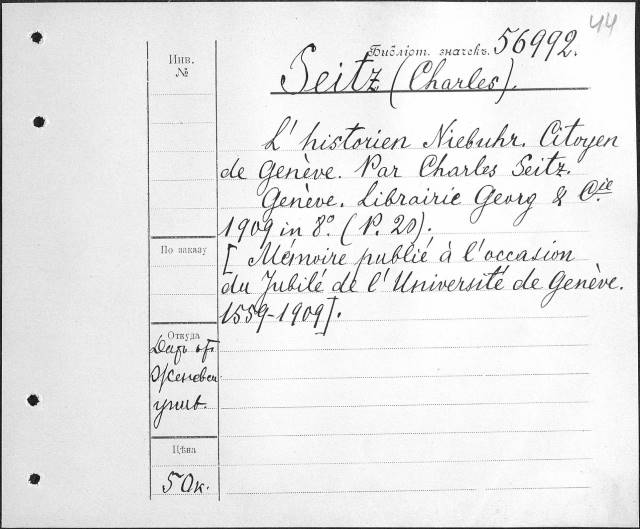 44
Библіот. значекъ. 56992.
Инв.
№
Seitz (Charles).
L'historien Niebuhr. Citoyen
de Genève. Par Charles Seitz.
Genève. Librairie Georg & Cie
1909 in 8º. (P. 20).
По заказу
[Mémoire publié à l'occasion
du Jubilé de l'Université de Genève.
1559-1909].
Откуда
Даръ от
Женевск
унив.
Цѣна
50к.